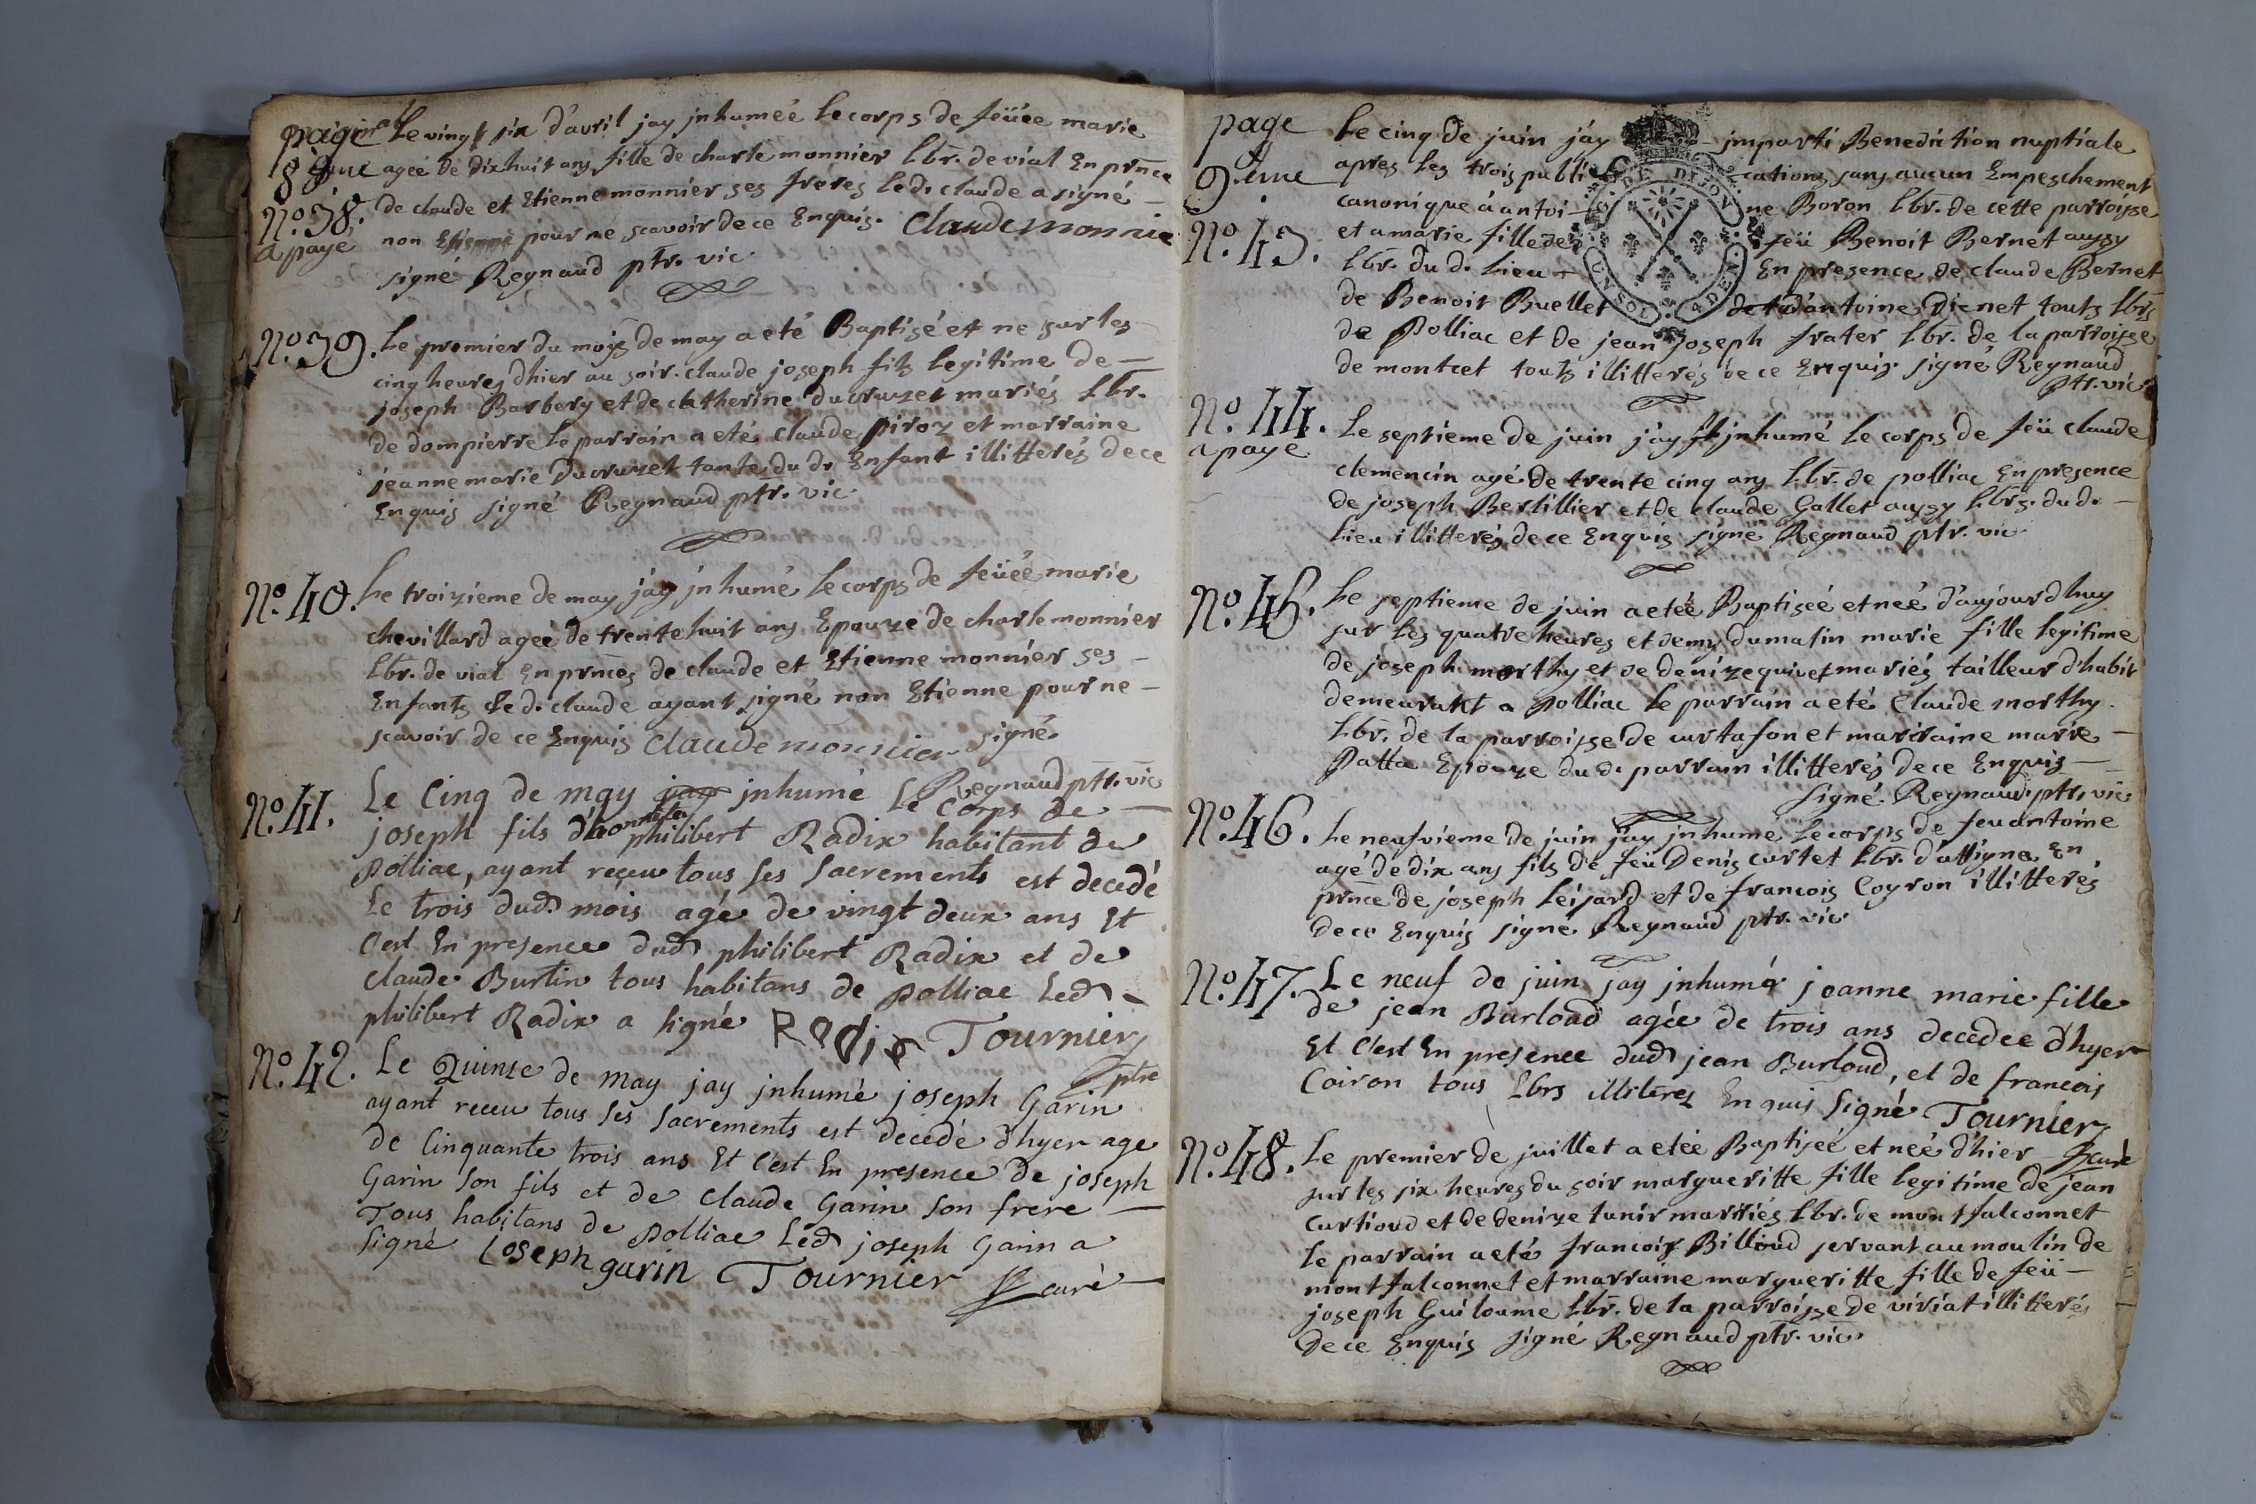 page
8 eme
No. 38.
a payé
Le vingt six d'avril jay jnhumeé le corps de feüée marie
ageé de dixhuit ans fille de charle monnier lbr. de vial En prnce
de claude et Etienne monnier ses fréres led. claude a signé
non Etienne pour ne scavoir de ce Enquis. Claude monnie
signé Regnaud ptr. vic
No. 39.
Le premier du mois de may a eté Baptisé et ne sur les
cinq heures dhier au soir. claude joseph fils legitime de
joseph Barbery et de catherine ducruzet mariés lbr.
de dompierre le parrain a eté claude piroz et marraine
jeanne marie ducruzet tante du d. Enfant illitterés de ce
Enquis signé Regnaud ptr. vic
No. 40.
Le troizieme de may jáy jnhumé le corps de feüeé marie
chevillard ageé de trente huit ans Epouze de charle monnier
lbr. de vial En prnces de claude et Etienne monnier ses
Enfants led. claude ayant signé non Etienne pour ne
scavoir de ce Enquis Claude monnier signé
Regnaud ptr. vic
No. 41.
Le Cinq de may jay jnhumé le Corps de
joseph fils d'honnete philibert Radix habitant de
Polliac, ayant reçeu tous ses sacrements est decedé
le trois dud. mois agé de vingt deux ans Et
C'est En presence dud. philibert Radix et de
Claude Burtin tous habitans de Polliac led.
philibert Radix a signé Radix Tournier
ptre
No. 42.
Le Quinze de may jay jnhumé joseph Garin
ayant receu tous ses sacrements est decedé d'hyer age
de Cinquante trois ans Et C'est En presence de joseph
Garin son fils et de Claude Garin son frere
Tous habitans de Polliac led. joseph Garin a
signé joseph garin Tournier curé
page
9. eme
No. 43.
Le cinq de juin jáy jmparti Benediction nuptiale
apres les trois publications sans aucun Empeschement
canonique à antoine Boron lbr. de cette parroisse
et a marie fille de feü Benoit Bernet aussy
lbr. du d. lieu En presence de claude Bernet
de Benoit Buellet d'antoine Dienet touts lbrs
de Polliac et de jean joseph frater lbr. de la parroisse
de montcet touts illitterés de ce Enquis signé Regnaud
ptr. vic
GEN. DE DIJON
UN SOL 4 DEN.
No. 44.
a payé
Le septieme de juin j'ay jnhumé le corps de feü claude
clemencin agé de trente cinq ans lbr. de polliac En presence
de joseph Bertillier et de claude Gallet aussy lbrs. du d.
lieu illitterés de ce Enquis signé Regnaud ptr. vic
No. 45.
Le septieme de juin a eteé Baptiseé et neé d'aujourdhuy
sur les quatre heures et demy du matin marie fille legitime
de joseph morthy et de denize quivet mariés tailleur d'habit
demeurant a Polliac le parrain a eté Claude morthy
lbr. de la parroisse de curtafon et marraine marie
Patta Epouze du d. parrain illitterés de ce Enquis
signé Regnaud ptr. vic
No. 46.
Le neufvieme de juin jay jnhumé le corps de feu antoine
agé de dix ans fils de feü Denis curtet lbr. d'attigna En
prnce de joseph Léijard et de francois Coyron illitterés
de ce Enquis signé Regnaud ptr. vic
No. 47.
Le neuf de juin jay jnhumé jeanne marie fille
de jean Burloud agée de trois ans decedee d'hyer
Et C'est En presence dud. jean Burloud, et de francois
Coiron tous lbrs illiterez Enquis signé Tournier
curé
No. 48.
Le premier de juillet a eteé Baptiseé et neé d'hier
sur les six heures du soir margueritte fille legitime de jean
Curtioud et de denize tunir mariés lbr. de montfalconnet
le parrain a eté francois Billioud servant au moulin de
montfalconnet et marraine margueritte fille de feü
joseph Guiloume lbr. de la parroisse de viriat illitterés
de ce Enquis signé Regnaud ptr. vic